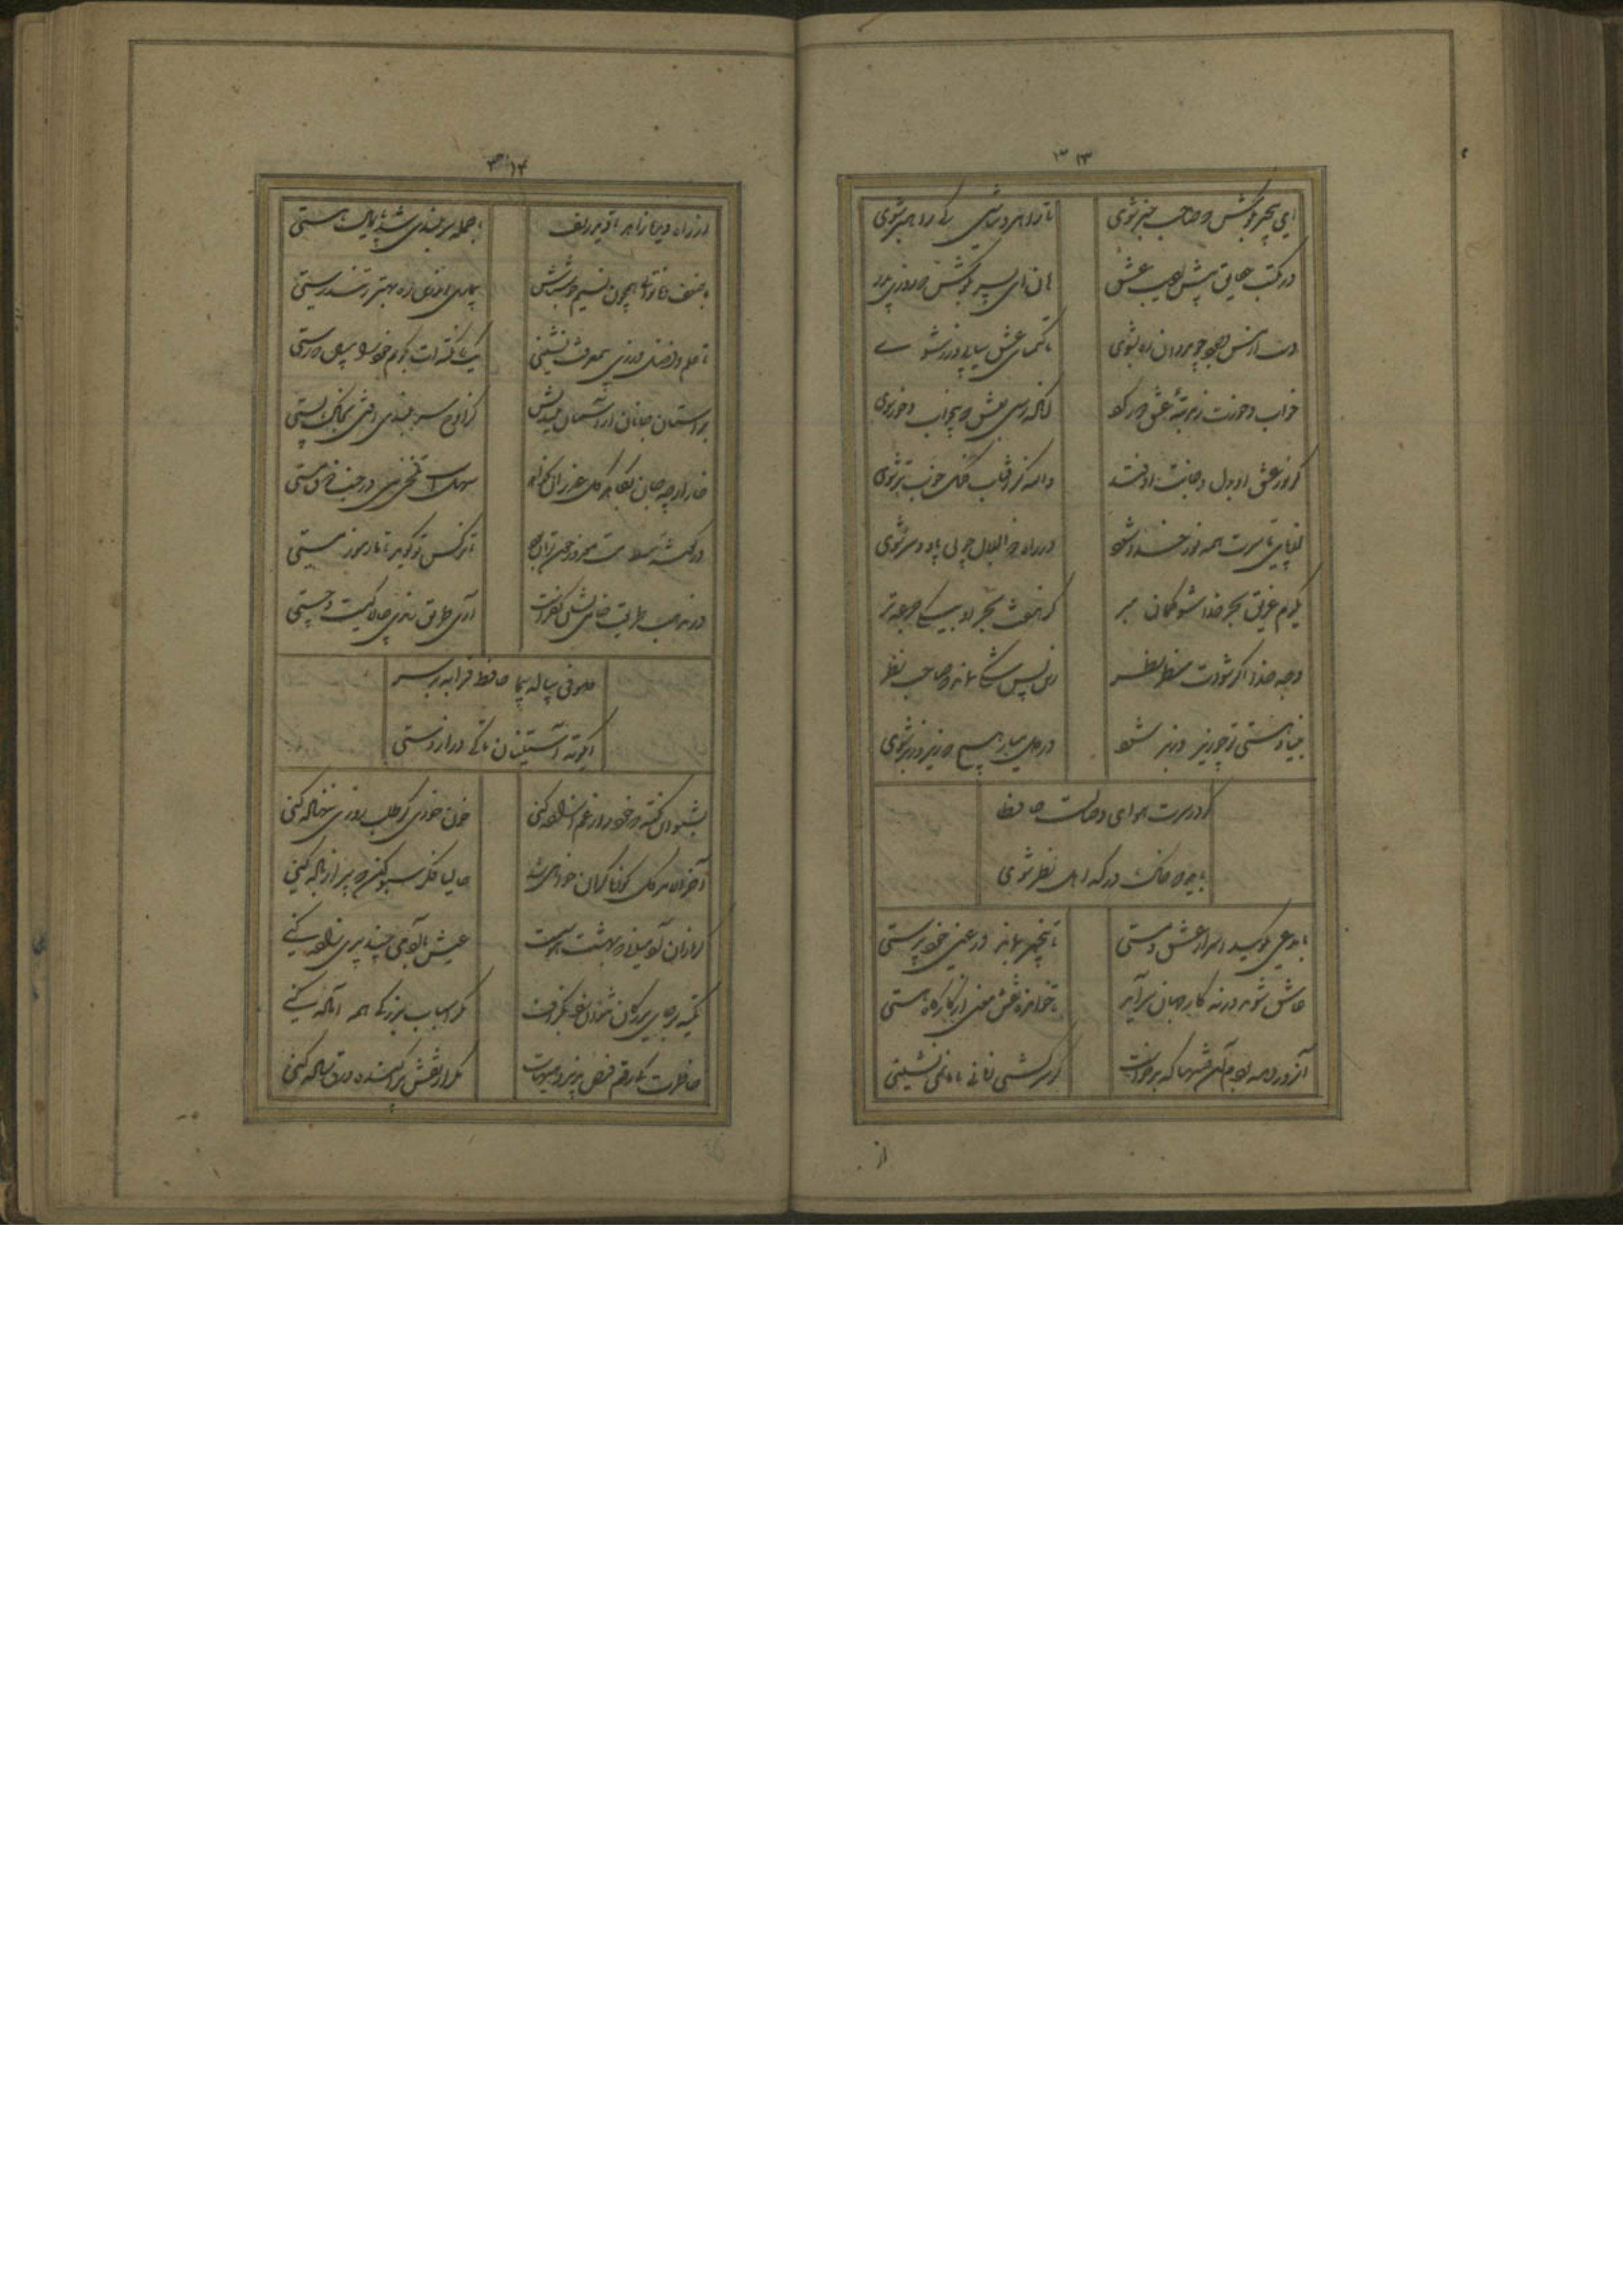 ۳۱۳
ای بیخبر بکوش که صاحب خبر شوی تا راهرو نباشی کی راهبر شوی
در مکتب حقایق پیش ادیب عشق هان ای پسر بکوش که روزی پدر شوی
دست از مس وجود چو مردان ره بشوی تا کیمیای عشق بیابی و زر شوی
خواب و خورت ز مرتبه عشق دور کرد آنکه رسی بعشق که بیخواب و خور شوی
گر نور عشق او بدل و جانت اوفتد والله کز آفتاب فلک خوب تر شوی
از پای تا سرت همه نور خدا شود در راه ذوالجلال چو بی پا و سر شوی
یکدم غریق بحر خدا شو گمان مبر کز هفت بحر او بیک موی تر
وجه خدا اگر شودت منظر نظر زین پس شکی نماند که صاحب نظر
بنیاد هستی تو چو زیر و زبر شود در دل مدار هیچ که زیر و زبر شوی
گر در سرت هوای وصالست حافظا
باید که خاک درگه اهل نظر شوی
با مدعی مگویید اسرار عشق و مستی تا بیخبر بماند در عین خودپرستی
عاشق شو ورنه کار جهان سرآید ناخوانده نقش مقصود از کارگاه هستی
آنروز دیده بودم آن فتنها که برخاست کز سرکشی زمانی با ما نمی نشستی
از
۳۱۴
با ضعف و ناتوانی همچون نسیم خوش باش بیماری اندرین ره بهتر ز تندرستی
تا علم و فضل بینی بی معرفت نشینی یک نکته ات بگویم خود را مبین که رستی
بر آستان جانان از آسمان میندیش کز اوج سربلندی افتی بخاک پستی
خار ار چه جان بکاهد گل عذر آن بخواهد سهلست تلخی می در جنب ذوق مستی
در مذهب طریقت خامی نشان کفرست آری طریق رندی چالاکیست و چستی
صوفی پیاله پیما حافظ قرابه پرهیز
ای کوته آستینان تا کی دراز دستی
بشنو این نکته که خود را ز غم آزاده کنی خون خوری گر طلب روزی ننهاده کنی
آخرالامر گل کوزه گران خواهی شد حالیا فکر سبو کن که پر از باده کنی
گر از آن آدمیانی که بهشتت هوسست عیش با آدمی چند پری زاده کنی
تکیه بر جای بزرگان نتوان زد بگزاف مگر اسباب بزرگی همه آماده کنی
خاطرت کی رقم فیض پذیرد هیهات مگر از نقش پراکنده ورق ساده کنی